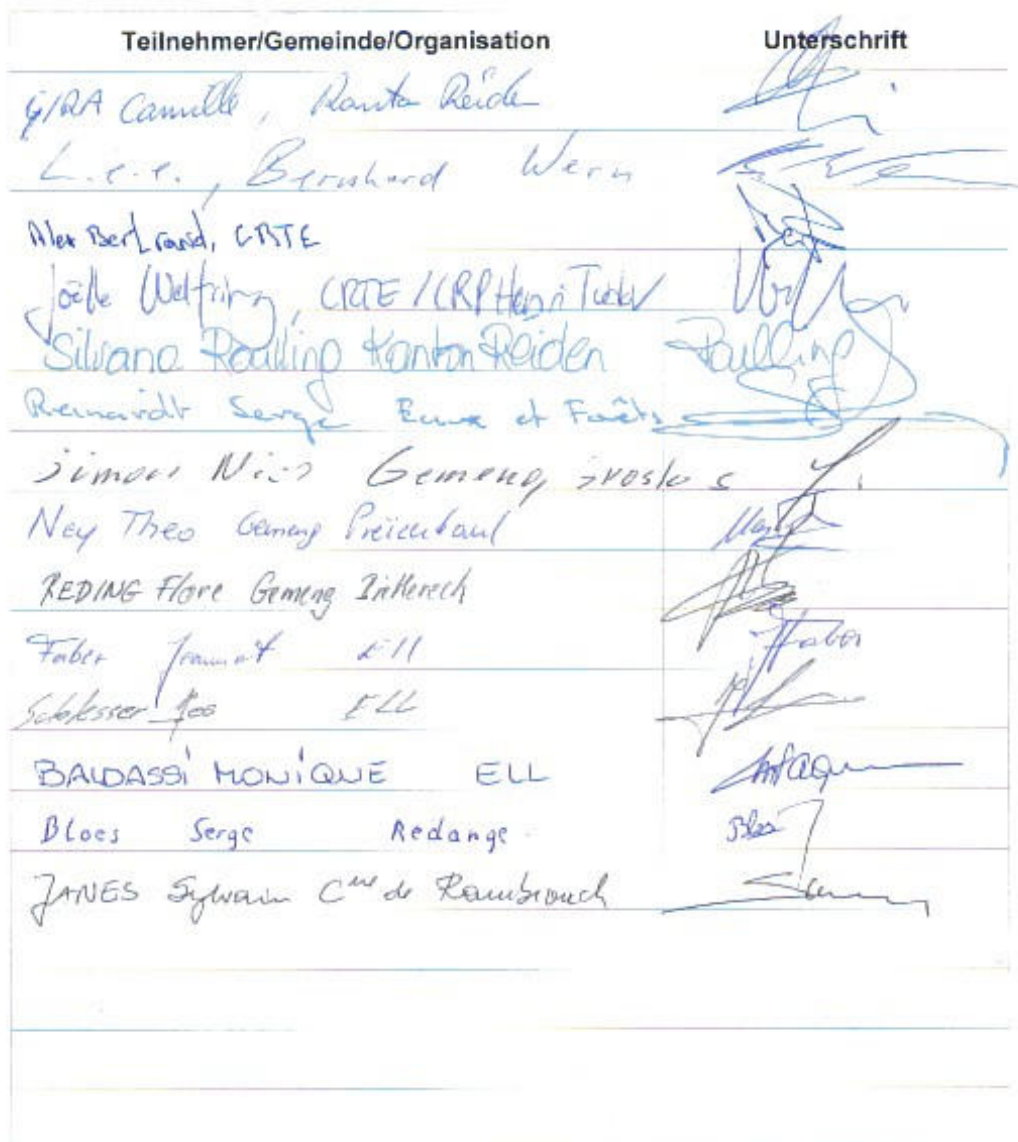 Teilnehmer/Gemeinde/Organisation Unterschrift
GIRA Camille, Kanton Réiden
L.e.e., Bernhard Wern
Alex Bertrand, CRTE
Joëlle Welfring, CRTE / CRP Henri Tudor
Silvana Roulling Kanton Reiden Roulling
Reinardt Serge Eaux et Forêts
Simon Nico Gemeng
Ney Theo Gemeng
REDING Flore Gemeng
Faber Ell Faber
Schlesser Jos ELL
BALDASSI MONIQUE ELL
Bloes Serge Redange Bloes
JANES Sylvain Cne de Rambrouch